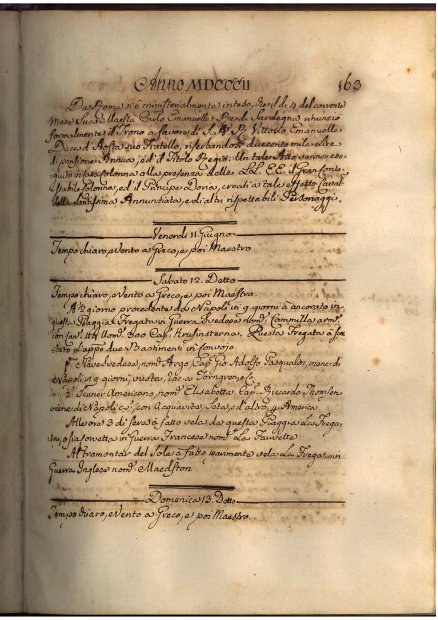 Anno MDCCCII 163
Da Roma si è ministerialmente inteso, che il dì 4 del corrente
Mese Sua Maestà Carlo Emanuelle Re di Sardegna rinunziò
formalmente il Trono a favore di S. A. R. Vittorio Emanuelle
Duca d'Aosta suo Fratello, riserbandosi duecento mila Lire
di pensione Annua, ed il Titolo Regio. Un tale Atto venne ese
guito in forma solenne alla presenza delle LL. EE. il Gran Contes
tabile Colonna, ed il Principe Doria, creati a tale effetto Caval
della Santissima Annunziata, e di altri rispettabili Personaggi.
Venerdì 11 Giugno
Tempo chiaro, e Vento a Greco, e poi Maestro.
Sabato 12. Detto
Tempo chiaro, e Vento a Greco, e poi Maestro.
A giorno procedente da Napoli in 9 giorni à ancorato in
queste Piaggia la Fregata in Guerra Svedese nom. Cammilla arm.
con can. 44 Uom. 300 Cap. Questa Fregata à
due Bastimenti in convojo
1.° Nave Svedese nom. Argo Cap. Gio Adolfo Pasqualin, viene di
Napoli in 9 giorni, vuota, rac. a
2.° American, nom. Elisabetta, Cap. Riccardo
viene di Napoli, con Acquavite, Seta, ed altro p. America
Alle ore 3 di sera à fatto vela da questa Piaggia la Frega
ta, o sia in Guerra Francese nom. La Fauvette
Al tramontar del Sole à fatto parimente vela la Fregata in
Guerra Inglese nom.
Domenica 13. Detto
Tempo chiaro, e Vento a Greco, e poi Maestro.